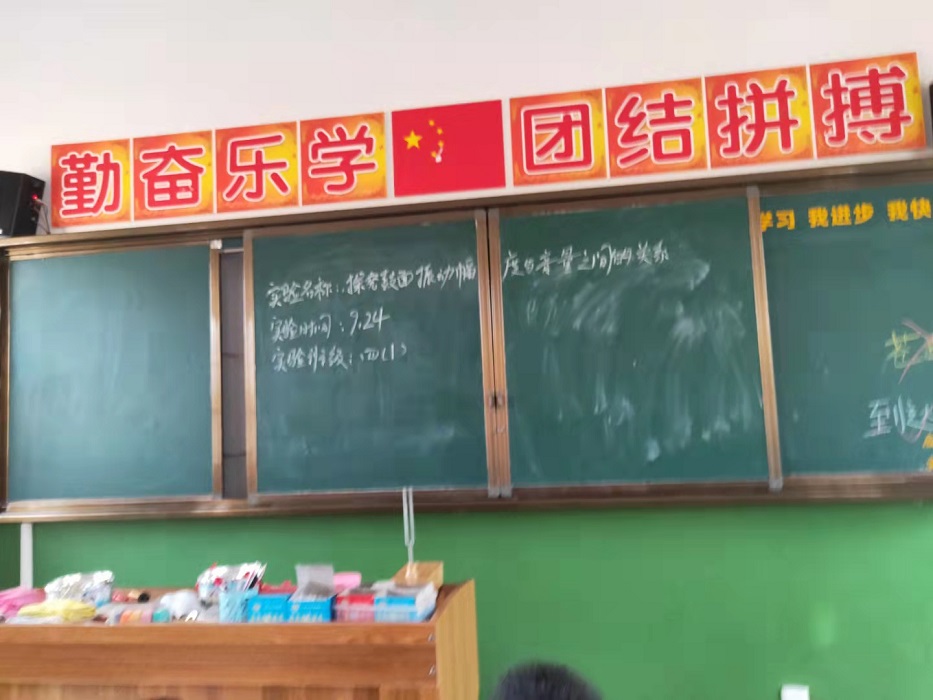 勤奋乐学 团结拼搏
学习 我进步 我快
实验名称：探究鼓面振动幅度与音量之间的关系
实验时间：9.24
实验班级：四(1)